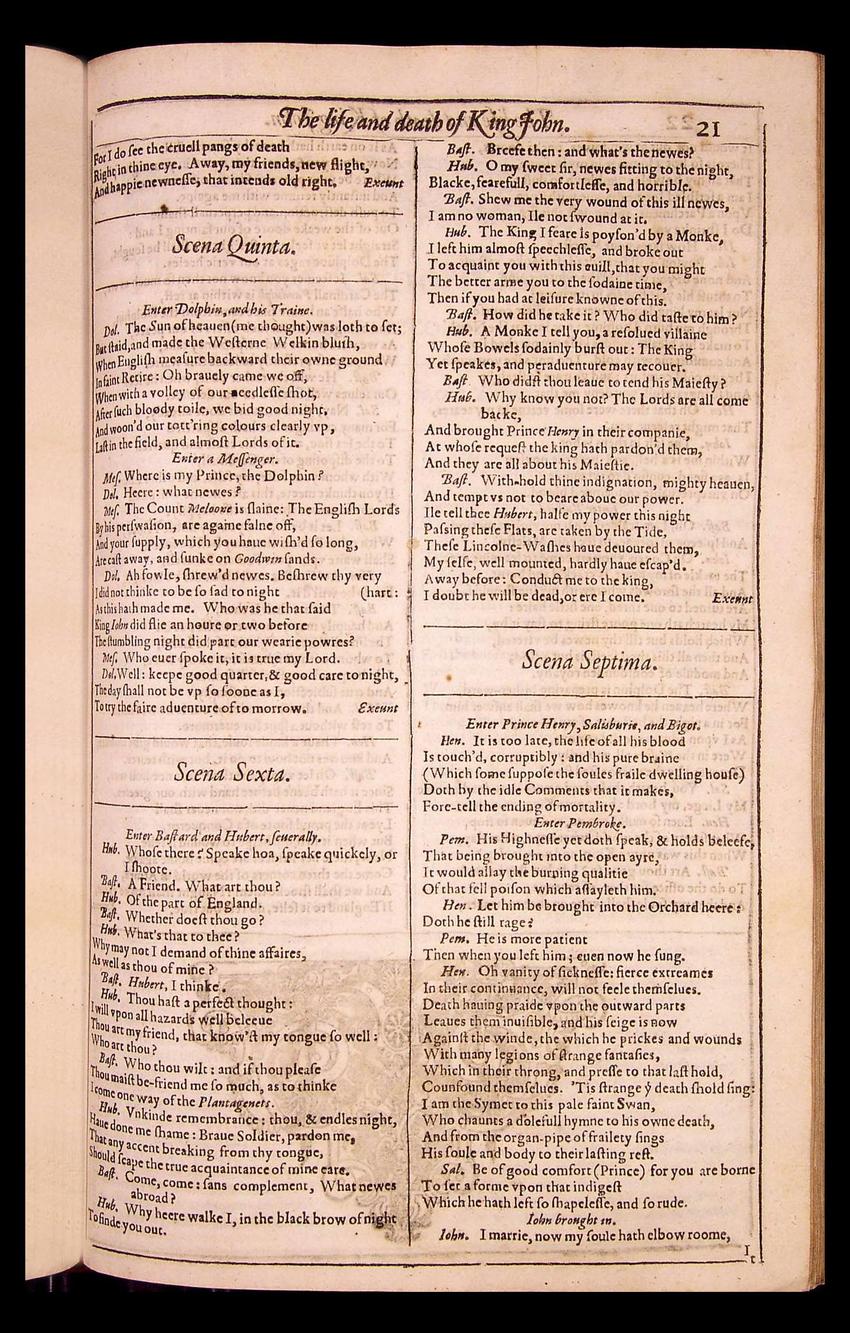 The life and death of King John. 21
For I do ſee the cruell pangs of death
Right in thine eye. Away, my friends, new flight,
And happie newneſſe, that intends old right. Exeunt
Scena Quinta.
Enter Dolphin, and his Traine.
Dol. The Sun of heauen (me thought) was loth to ſet;
But ſtaid, and made the Weſterne Welkin bluſh,
When Engliſh meaſure backward their owne ground
In faint Retire: Oh brauely came we off,
When with a volley of our needleſſe ſhot,
After ſuch bloody toile, we bid good night,
And woon'd our tott'ring colours clearly vp,
Laſt in the field, and almoſt Lords of it.
Enter a Meſſenger.
Meſ. Where is my Prince, the Dolphin?
Dol. Heere: what newes?
Meſ. The Count Meloone is ſlaine: The Engliſh Lords
By his perſwaſion, are againe falne off,
And your ſupply, which you haue wiſh'd ſo long,
Are caſt away, and ſunke on Goodwin ſands.
Dol. Ah fowle, ſhrew'd newes. Beſhrew thy very
I did not thinke to be ſo ſad to night (hart:
As this hath made me. Who was he that ſaid
King Iohn did flie an houre or two before
The ſtumbling night did part our wearie powres?
Meſ. Who euer ſpoke it, it is true my Lord.
Dol. Well: keepe good quarter, & good care to night,
The day ſhall not be vp ſo ſoone as I,
To try the faire aduenture of to morrow. Exeunt
Scena Sexta.
Enter Baſtard and Hubert, ſeuerally.
Hub. Whoſe there? Speake hoa, ſpeake quickely, or
I ſhoote.
Baſt. A Friend. What art thou?
Hub. Of the part of England.
Baſt. Whether doeſt thou go?
Hub. What's that to thee?
Why may not I demand of thine affaires,
As well as thou of mine?
Baſt. Hubert, I thinke.
Hub. Thou haſt a perfect thought:
I will vpon all hazards well beleeue
Thou art my friend, that know'ſt my tongue ſo well:
Who art thou?
Baſt. Who thou wilt: and if thou pleaſe
Thou maiſt be-friend me ſo much, as to thinke
I come one way of the Plantagenets.
Hub. Vnkinde remembrance: thou, & endles night,
Haue done me ſhame: Braue Soldier, pardon me,
That any accent breaking from thy tongue,
Should ſcape the true acquaintance of mine eare.
Baſt. Come, come: ſans complement, What newes
abroad?
Hub. Why heere walke I, in the black brow of night
To finde you out.
Baſt. Breefe then: and what's the newes?
Hub. O my ſweet ſir, newes fitting to the night,
Blacke, fearefull, comfortleſſe, and horrible.
Baſt. Shew me the very wound of this ill newes,
I am no woman, Ile not ſwound at it.
Hub. The King I feare is poyſon'd by a Monke,
I left him almoſt ſpeechleſſe, and broke out
To acquaint you with this euill, that you might
The better arme you to the ſodaine time,
Then if you had at leiſure knowne of this.
Baſt. How did he take it? Who did taſte to him?
Hub. A Monke I tell you, a reſolued villaine
Whoſe Bowels ſodainly burſt out: The King
Yet ſpeakes, and peraduenture may recouer.
Baſt Who didſt thou leaue to tend his Maieſty?
Hub. Why know you not? The Lords are all come
backe,
And brought Prince Henry in their companie,
At whoſe requeſt the king hath pardon'd them,
And they are all about his Maieſtie.
Baſt. With-hold thine indignation, mighty heauen,
And tempt vs not to beare aboue our power.
Ile tell thee Hubert, halfe my power this night
Paſsing theſe Flats, are taken by the Tide,
Theſe Lincolne-Waſhes haue deuoured them,
My ſelfe, well mounted, hardly haue eſcap'd.
Away before: Conduct me to the king,
I doubt he will be dead, or ere I come. Exeunt
Scena Septima.
Enter Prince Henry, Salisburie, and Bigot.
Hen. It is too late, the life of all his blood
Is touch'd, corruptibly: and his pure braine
(Which ſome ſuppoſe the ſoules fraile dwelling houſe)
Doth by the idle Comments that it makes,
Fore-tell the ending of mortality.
Enter Pembroke.
Pem. His Highneſſe yet doth ſpeak, & holds beleefe,
That being brought into the open ayre,
It would allay the burning qualitie
Of that fell poiſon which aſſayleth him.
Hen. Let him be brought into the Orchard heere:
Doth he ſtill rage?
Pem. He is more patient
Then when you left him; euen now he ſung.
Hen. Oh vanity of ſickneſſe: fierce extreames
In their continuance, will not feele themſelues.
Death hauing praide vpon the outward parts
Leaues them inuiſible, and his ſeige is now
Againſt the winde, the which he prickes and wounds
With many legions of ſtrange fantaſies,
Which in their throng, and preſſe to that laſt hold,
Counfound themſelues. 'Tis ſtrange ẏ death ſhold ſing:
I am the Symet to this pale faint Swan,
Who chaunts a dolefull hymne to his owne death,
And from the organ-pipe of frailety ſings
His ſoule and body to their laſting reſt.
Sal. Be of good comfort (Prince) for you are borne
To ſet a forme vpon that indigeſt
Which he hath left ſo ſhapeleſſe, and ſo rude.
Iohn brought in.
Iohn. I marrie, now my ſoule hath elbow roome,
It